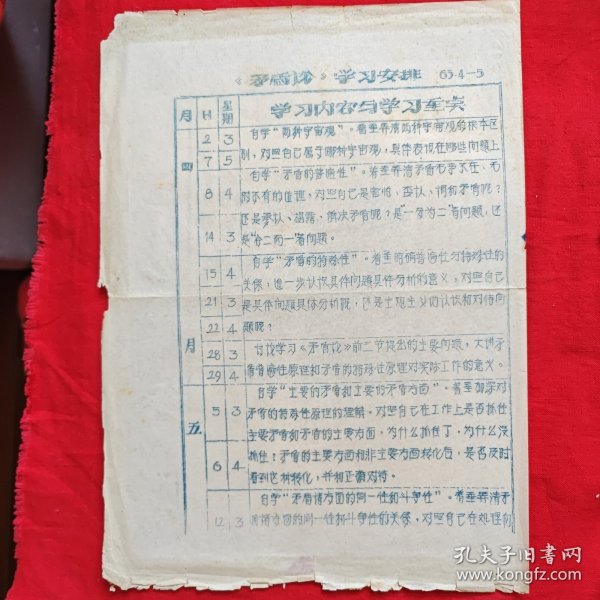 《矛盾论》学习安排 65·4-5
月 日 星期 学习内容与学习重点
四月
2 3
自学“两种宇宙观”。着重弄清两种宇宙观的根本区
7 5
别，对照自己属于哪种宇宙观，具体表现在哪些问题上
8 4
自学“矛盾的普遍性”。着重弄清矛盾无事不在、无
时不有的道理，对照自己是害怕、否认、调和矛盾呢？
还是承认、揭露、解决矛盾呢？是“一分为二”看问题，还
14 3
是“合二而一”看问题。
15 4
自学“矛盾的特殊性”。着重明确普遍性与特殊性的
关系，进一步认识具体问题具体分析的意义，对照自己
21 3
是具体问题具体分析呢，还是主观主义的认识和对待问
22 4
题呢？
28 3
讨论学习《矛盾论》前二节提出的主要问题，大讲矛
29 4
盾普遍性原理和矛盾的特殊性原理对实际工作的意义。
五
自学“主要的矛盾和主要的矛盾方面”。着重加深对
5 3
矛盾的特殊性原理的理解。对照自己在工作上是否抓住
主要矛盾和矛盾的主要方面，为什么抓住了，为什么没
6 4
抓住？矛盾的主要方面和非主要方面转化后，是否及时
看到它的转化，并和正确对待。
自学“矛盾诸方面的同一性和斗争性”。着重弄清矛
12 3
盾诸方面的同一性和斗争性的关系，对照自己在处理的
孔夫子旧书网
www.kongfz.com